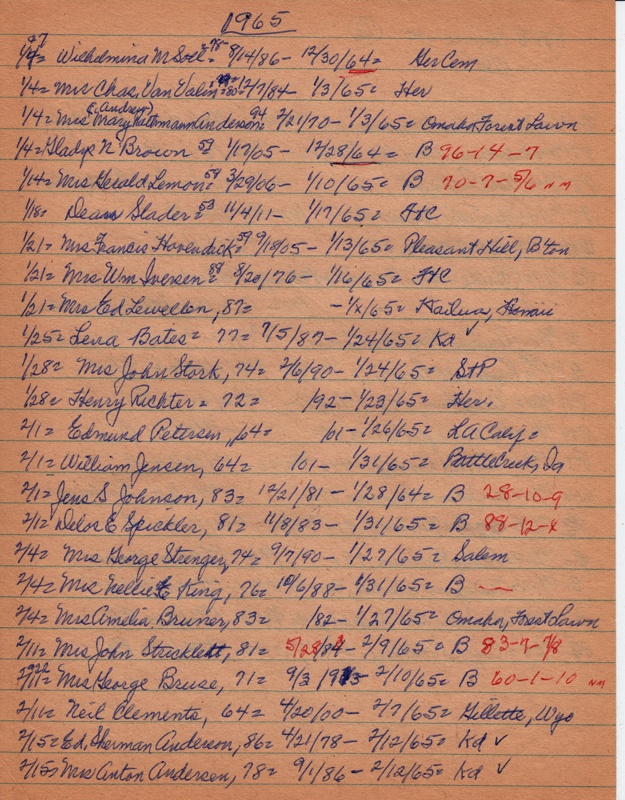 1965
1/4= Wilhelmina M Soll= 78= 8/14/86- 12/30/64= Her Cem
1/4= Mrs Chas. Van Valin= 80= 12/7/84- 1/3/65= Her
(C. Andrew)
1/4= Mrs Mary Anderson= 94 2/21/70- 1/3/65= Omaha Forest Lawn
1/4= Gladys N Brown 59 1/17/05- 12/28/64= B 96-14-7
1/14= Mrs Gerald Lemon= 58 3/29/06- 1/10/65= B 70-7-5/6 NM
1/18= Dean Slader= 53 11/4/11- 1/17/65= FtC
1/21= Mrs Francis Hovendick= 59 9/18/05- 1/13/65= Pleasant Hill, B'ton
1/21= Mrs Wm Iversen= 88 8/20/76- 1/16/65= FtC
1/21= Mrs Ed Lewellen, 87= -1/x/65= Kailua, Hawaii
1/25= Lena Bates= 77= 7/5/87- 1/24/65= Kd ✓
1/28= Mrs John Stork, 74= 2/6/90- 1/24/65= StP
1/28= Henry Richter= 72= /92- 1/23/65= Her.
2/1= Edmund Petersen, 64= /01- 1/26/65= LA Calif=
2/1= William Jensen, 64= /01- 1/31/65= Battlecreek, Ia
2/1= Jens S Johnson, 83= 12/21/81- 1/28/64= B 28-10-9
2/1= Delos E Spickler, 81= 11/8/83- 1/31/65= B 88-12-x
2/4= Mrs George Strenger, 74= 9/7/90- 1/27/65= Salem
2/4= Mrs Nellie E King, 76= 10/6/88- 1/31/65= B —
2/4= Mrs Amelia Bruner, 83= /82- 1/27/65= Omaha, Forest Lawn
2/11= Mrs John Stricklett, 81= 5/28/84- 2/9/65= B 83-7-7/8
2/11= Mrs George Bruse, 71= 9/3/93- 2/10/65= B 60-1-10 NM
2/11= Neil Clements, 64= 4/20/00- 2/7/65= Gillette, Wyo
2/15= Ed, Sherman Anderson, 86= 4/21/78- 2/12/65= Kd ✓
2/15= Mrs Anton Andersen, 78= 9/1/86- 2/12/65= Kd ✓